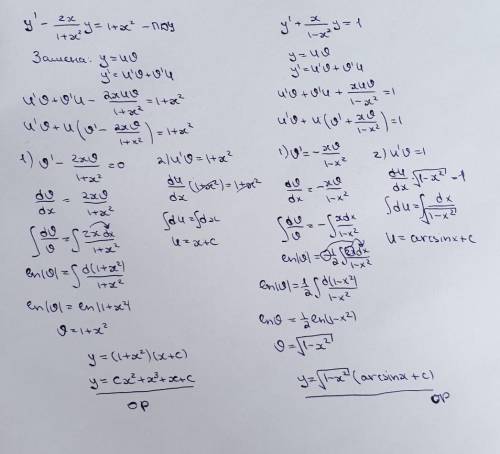 y' - 2x/(1+x²) y = 1+x² - ЛДУ
Замена: y = uϑ
y' = u'ϑ + ϑ'u
u'ϑ + ϑ'u - 2xuϑ/(1+x²) = 1+x²
u'ϑ + u(ϑ' - 2xϑ/(1+x²)) = 1+x²
1) ϑ' - 2xϑ/(1+x²) = 0
dϑ/dx = 2xϑ/(1+x²)
∫dϑ/ϑ = ∫2xdx/(1+x²)
ln|ϑ| = ∫d(1+x²)/(1+x²)
ln|ϑ| = ln|1+x²|
ϑ = 1+x²
2) u'ϑ = 1+x²
du/dx (1+x²) = 1+x²
∫du = ∫dx
u = x+c
y = (1+x²)(x+c)
y = cx² + x³ + x + c
ОР
y' + x/(1-x²) y = 1
y = uϑ
y' = u'ϑ + ϑ'u
u'ϑ + ϑ'u + xuϑ/(1-x²) = 1
u'ϑ + u(ϑ' + xϑ/(1-x²)) = 1
1) ϑ' = -xϑ/(1-x²)
dϑ/dx = -xϑ/(1-x²)
∫dϑ/ϑ = -∫xdx/(1-x²)
ln|ϑ| = -1/2 ∫2xdx/(1-x²)
ln|ϑ| = 1/2 ∫d(1-x²)/(1-x²)
lnϑ = 1/2 ln(1-x²)
ϑ = √(1-x²)
2) u'ϑ = 1
du/dx √(1-x²) = 1
∫du = ∫dx/√(1-x²)
u = arcsinx + c
y = √(1-x²) (arcsinx + c)
ОР